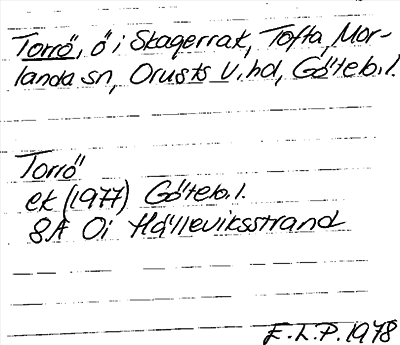 Torrö, ö i Skagerrak, Tofta, Mor-
landa sn, Orusts V. hd, Göteb. l.
Torrö
ek (1977) Göteb. l.
8A 0i Hälleviksstrand
E.L.P. 1978